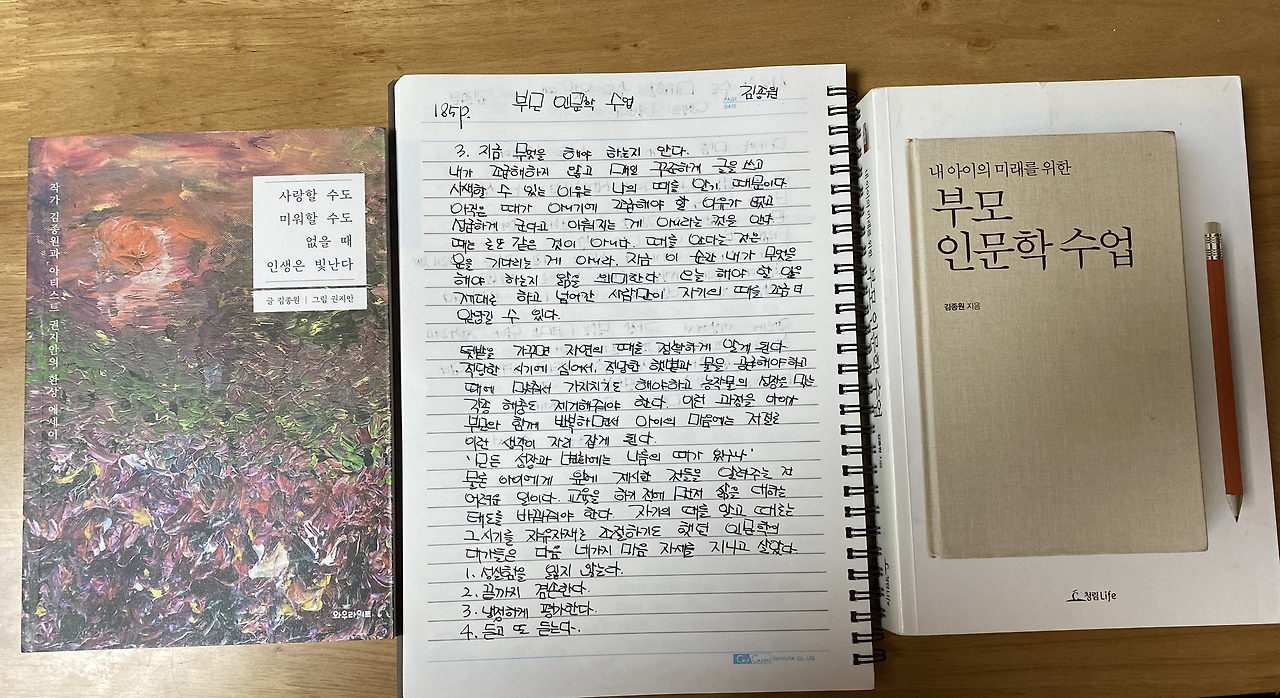 작가 김종원과 아티스트 권지안의 환상 에세이
사랑할 수도
미워할 수도
없을 때
인생은 빛난다
글 김종원 | 그림 권지안
와우라이프
185p.
부모 인문학 수업
김종원
PAGE
DATE
3. 지금 무엇을 해야 하는지 안다.
내가 조급해하지 않고 매일 꾸준하게 글을 쓰고
사색할 수 있는 이유는 나의 때를 알기 때문이다
아직은 때가 아니기에 조급해야 할 이유가 없고
성급하게 한다고 이뤄지는 게 아니라는 것을 안다.
때는 눈과 같은 것이 아니다. 때를 안다는 것은
운을 기다리는 게 아니라, 지금 이 순간 내가 무엇을
해야 하는지 앎을 의미한다. 오늘 해야 할 일을
제대로 하고 넘어간 사람만이 자기의 때를 조금 더
앞당길 수 있다.
텃밭을 가꾸면 자연의 때를 정확하게 알게 된다.
적당한 시기에 심어서, 적당한 햇볕과 물을 공급해야하고
때에 맞춰서 가지치기도 해야하고 농작물의 성장을 막는
각종 해충도 제거해줘야 한다. 이런 과정을 아이가
부모와 함께 반복하면서 아이의 마음에는 저절로
이런 생각이 자리 잡게 된다.
'모든 성장과 변화에는 나름의 때가 있구나'
물론 아이에게 위에 제시한 것들을 알려주는 건
어려운 일이다. 교육을 하기 전에 먼저 삶을 대하는
태도를 바꿔줘야 한다. 자기의 때를 알고 때로는
그 시기를 자유자재로 조절하기도 했던 인문학의
대가들은 다음 네가지 마음 자세를 지니고 살았다.
1. 성실함을 잃지 않는다.
2. 끝까지 겸손한다.
3. 냉정하게 평가한다.
4. 듣고 또 듣는다.
내 아이의 미래를 위한
부모
인문학 수업
김종원 지음
청림Life